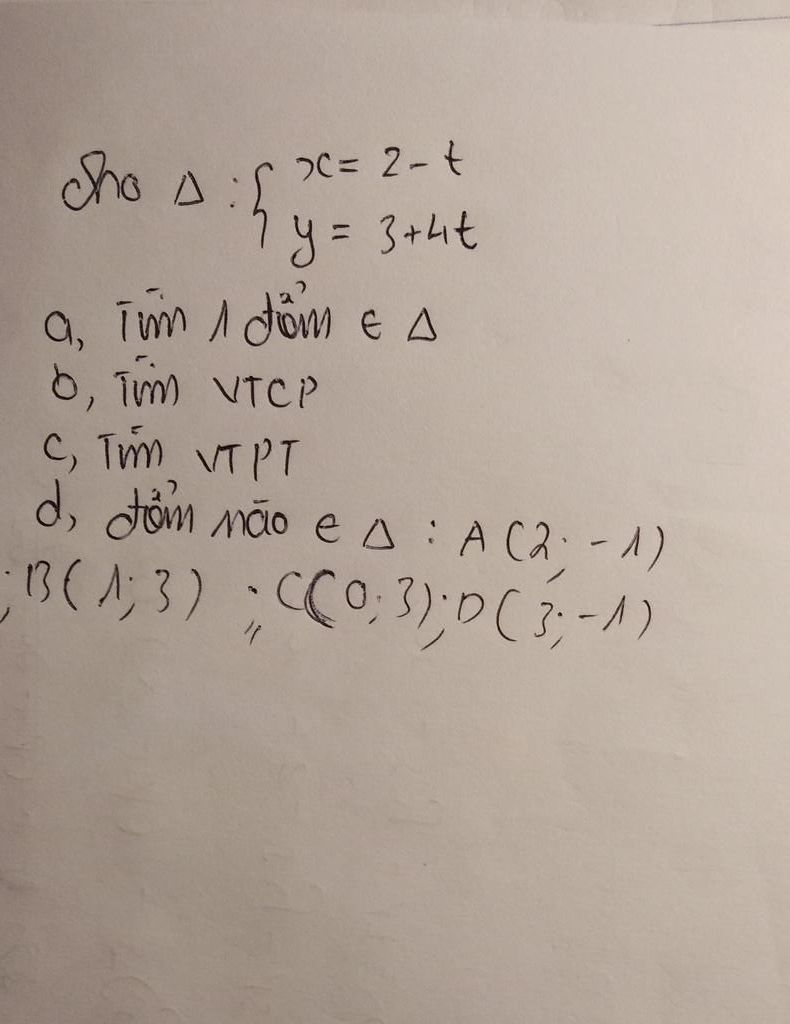 Cho Δ : { x = 2 - t
y = 3 + 4t
a, Tìm 1 điểm ∈ Δ
b, Tìm VTCP
c, Tìm VTPT
d, điểm nào ∈ Δ : A(2; -1)
; B(1; 3) ; C(0; 3); D(3; -1)